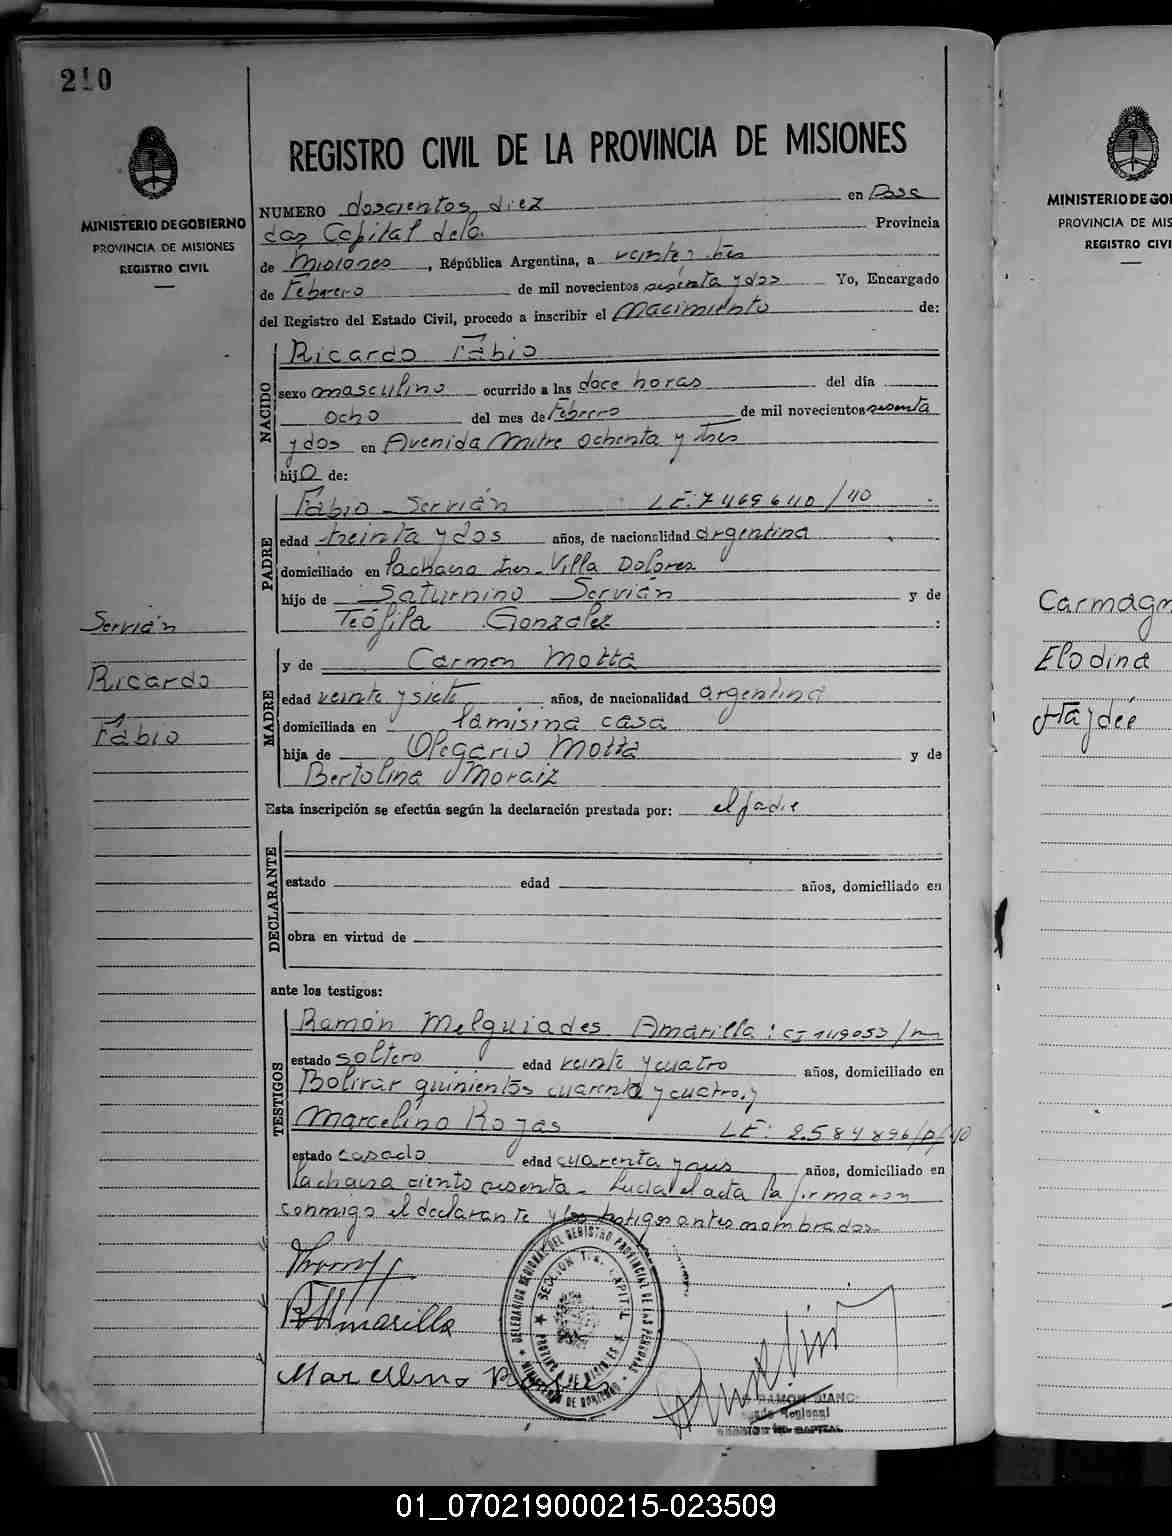 210
MINISTERIO DE GOBIERNO
PROVINCIA DE MISIONES
REGISTRO CIVIL
REGISTRO CIVIL DE LA PROVINCIA DE MISIONES
NUMERO doscientos diez en Posa
das Capital dela Provincia
de Misiones, República Argentina, a veinte y tres
de Febrero de mil novecientos sesenta y dos Yo, Encargado
del Registro del Estado Civil, procedo a inscribir el Nacimiento de:
NACIDO
Ricardo Fabio
sexo masculino ocurrido a las doce horas del día
ocho del mes de Febrero de mil novecientos sesenta
y dos en Avenida Mitre ochenta y tres
hijo de:
PADRE
Fabio Servián LE: 7469640/40
edad treinta y dos años, de nacionalidad argentina
domiciliado en la chacra tres - Villa Dolores
hijo de Saturnino Servián y de
Teófila Gonzalez :
MADRE
y de Carmen Motta
edad veinte y siete años, de nacionalidad argentina
domiciliada en la misma casa
hija de Olegario Motta y de
Bertolina Moraiz
Esta inscripción se efectúa según la declaración prestada por: el padre
DECLARANTE
estado edad años, domiciliado en
obra en virtud de
ante los testigos:
TESTIGOS
Ramón Melguiades Amarilla: CI 149053/m
estado soltero edad veinte y cuatro años, domiciliado en
Bolivar quinientos cuarenta y cuatro. y
Marcelino Rojas LE: 2.584896/D/40
estado casado edad cuarenta y años, domiciliado en
la chacra ciento sesenta - Leida el acta la firmaron
conmigo el declarante y los testigos antes nombrados
Servián
Ricardo
Fabio
RMAmarilla
Marcelino Rojas
DELEGACION REGIONAL DEL REGISTRO PROVINCIAL DE LAS PERSONAS
MINISTERIO DE GOBIERNO
SECCION 1ra. CAPITAL
PROVINCIA DE MISIONES
RAMON
Regional
CAPITAL
MINISTERIO DE GO
PROVINCIA DE MIS
REGISTRO CIVI
Carmagn
Elodina
Haydée
01_070219000215-023509